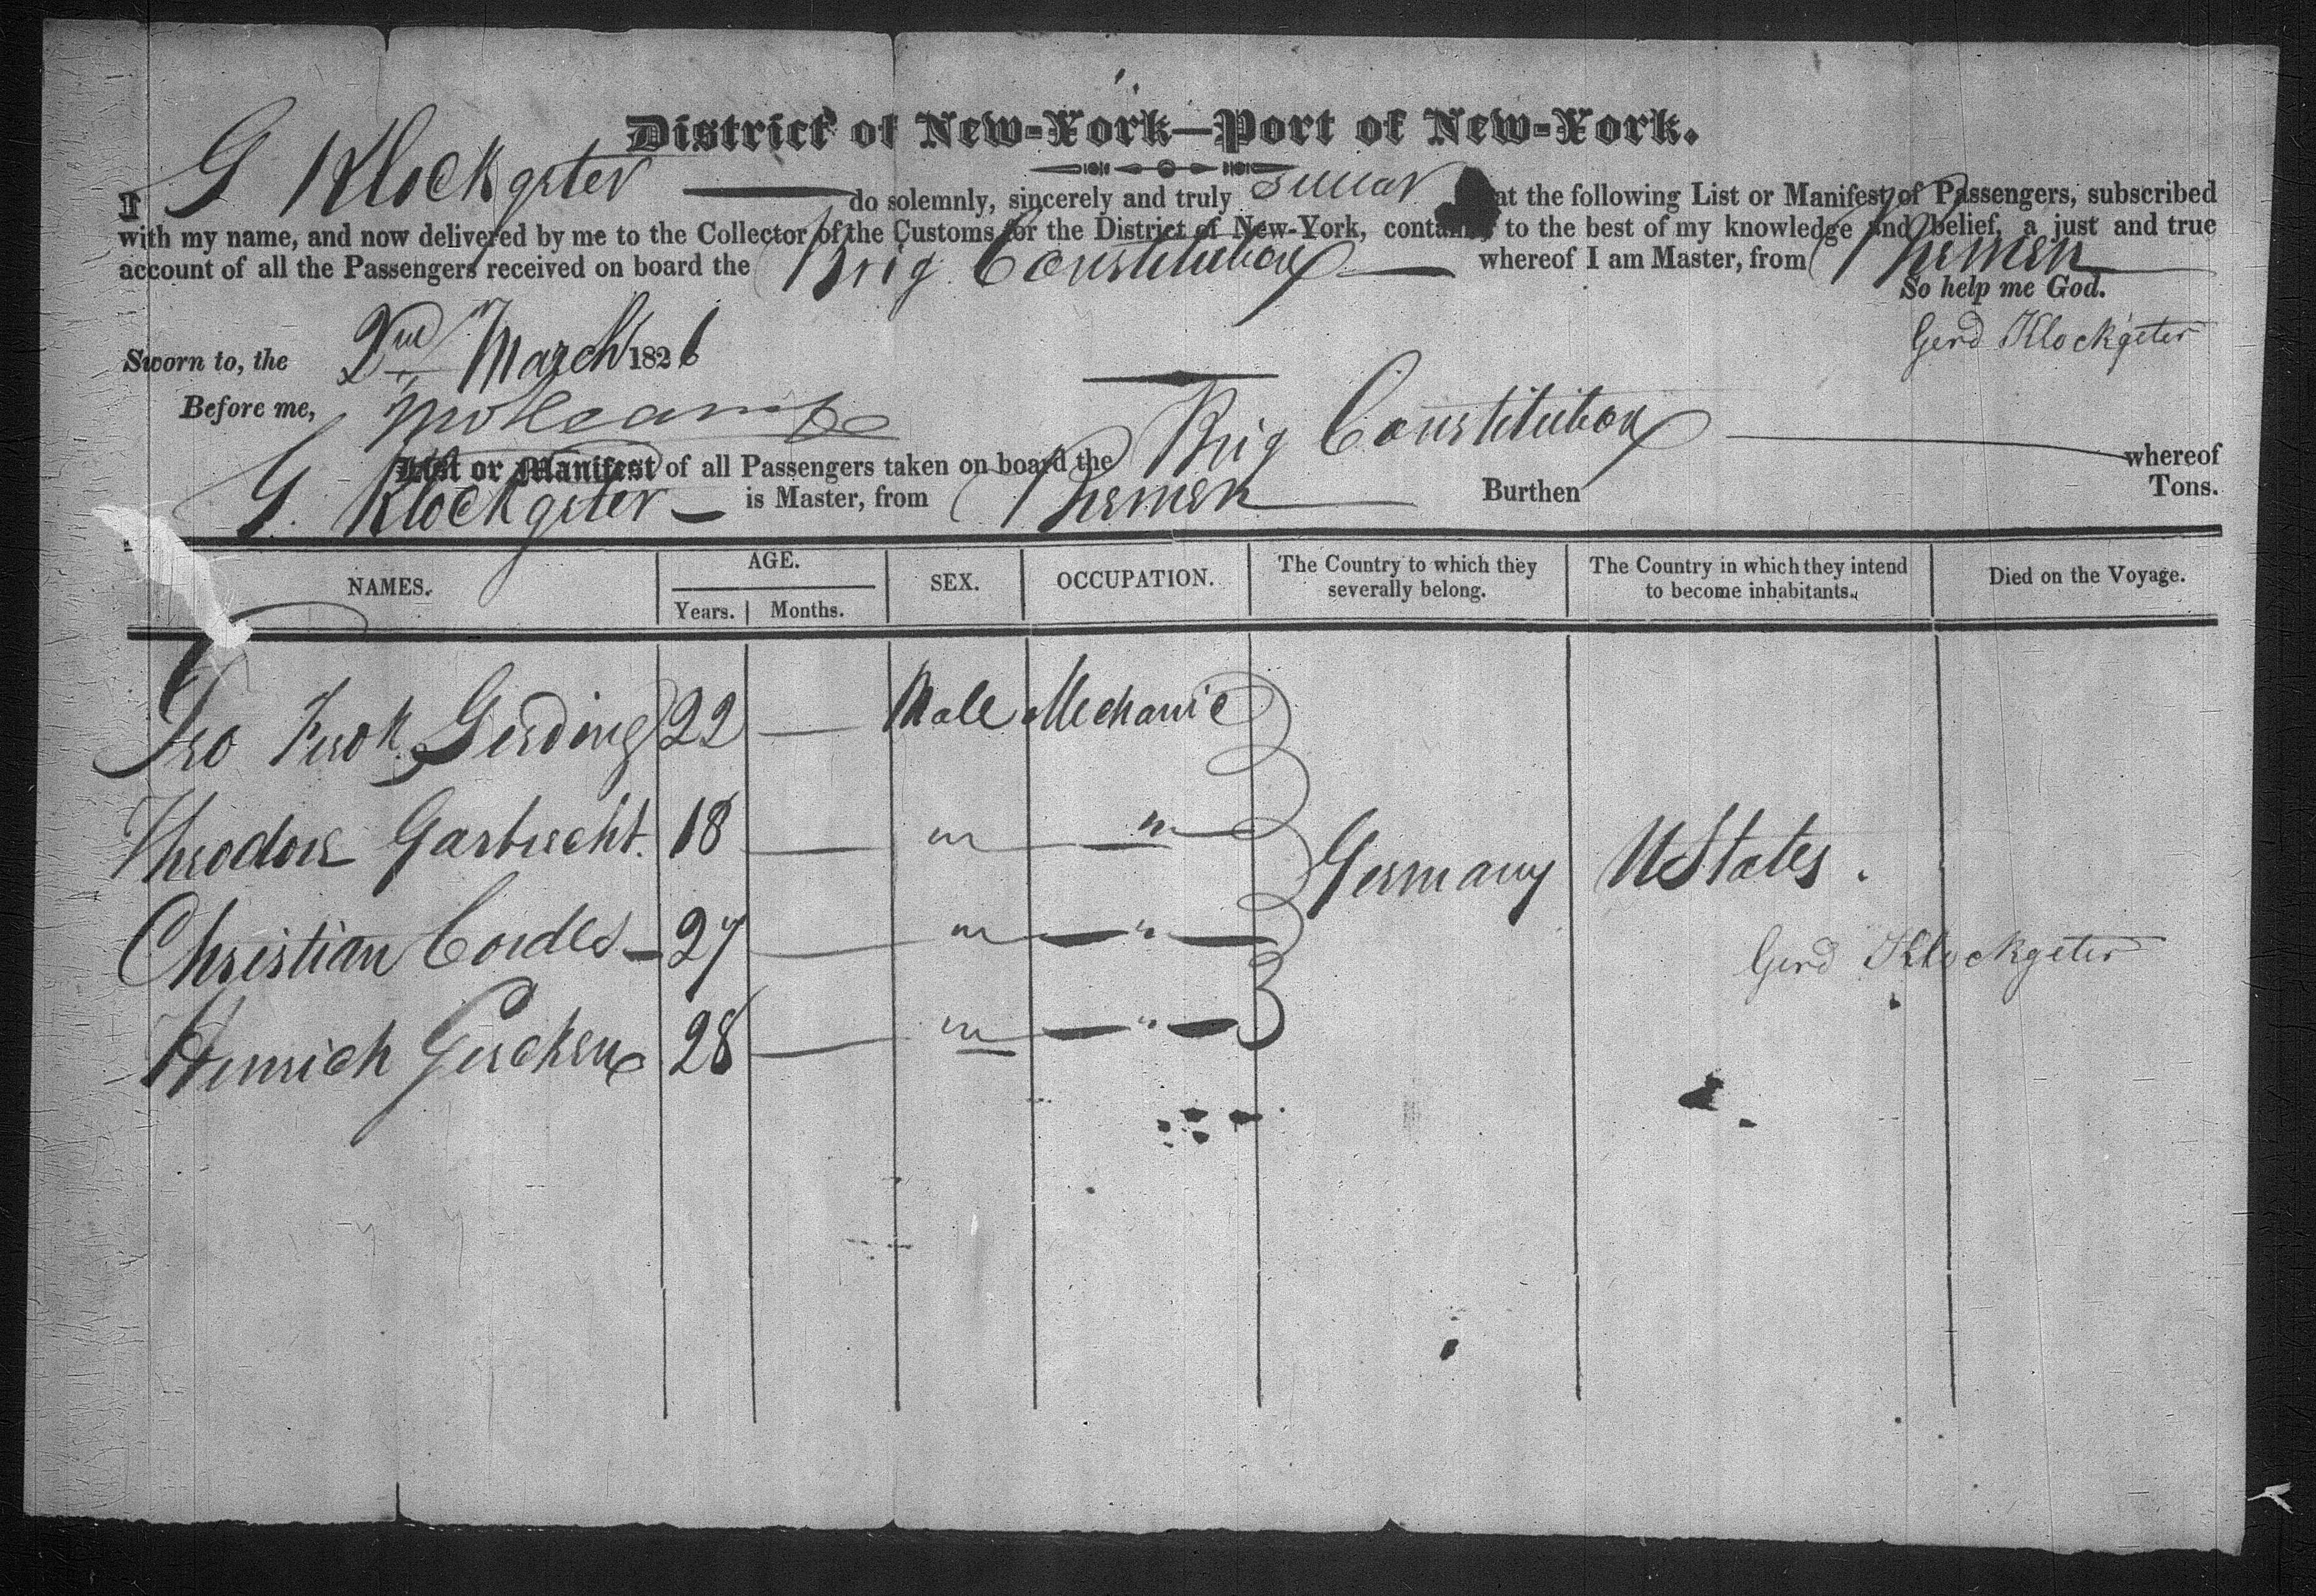 District of New-York—Port of New-York.
I G Klockgeter do solemnly, sincerely and truly swear that the following List or Manifest of Passengers, subscribed
with my name, and now delivered by me to the Collector of the Customs for the District of New-York, contains to the best of my knowledge and belief, a just and true
account of all the Passengers received on board the Brig Constitution whereof I am Master, from Bremen
So help me God.
Gerd Klockgeter
Sworn to, the 2nd March 1826
Before me,
List or Manifest of all Passengers taken on board the Brig Constitution whereof
G. Klockgeter is Master, from Bremen Burthen Tons.
NAMES. AGE. Years. Months. SEX. OCCUPATION. The Country to which they severally belong. The Country in which they intend to become inhabitants. Died on the Voyage.
Gerding 22 — Male Mechanic
Theodore Garbrecht. 18 — " "
Christian Cordes 27 — " "
Germany UStates.
Gerd Klockgeter
Heinrich Gercken 28 — " "